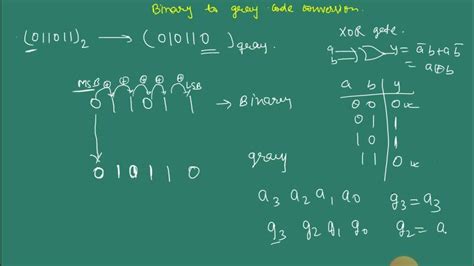 Binary to gray code conversion.
(011011)₂ → (010110)gray.
XOR gate.
a
b
y = a̅b+ab̅
= a⊕b
MSB ⊕ ⊕ ⊕ ⊕ ⊕ LSB
0 1 1 0 1 1 → Binary
a b y
0 0 0
0 1 1
1 0 1
1 1 0
0 1 0 1 1 0
gray
a₃ a₂ a₁ a₀ g₃ = a₃
g₃ g₂ g₁ g₀ g₂ = a